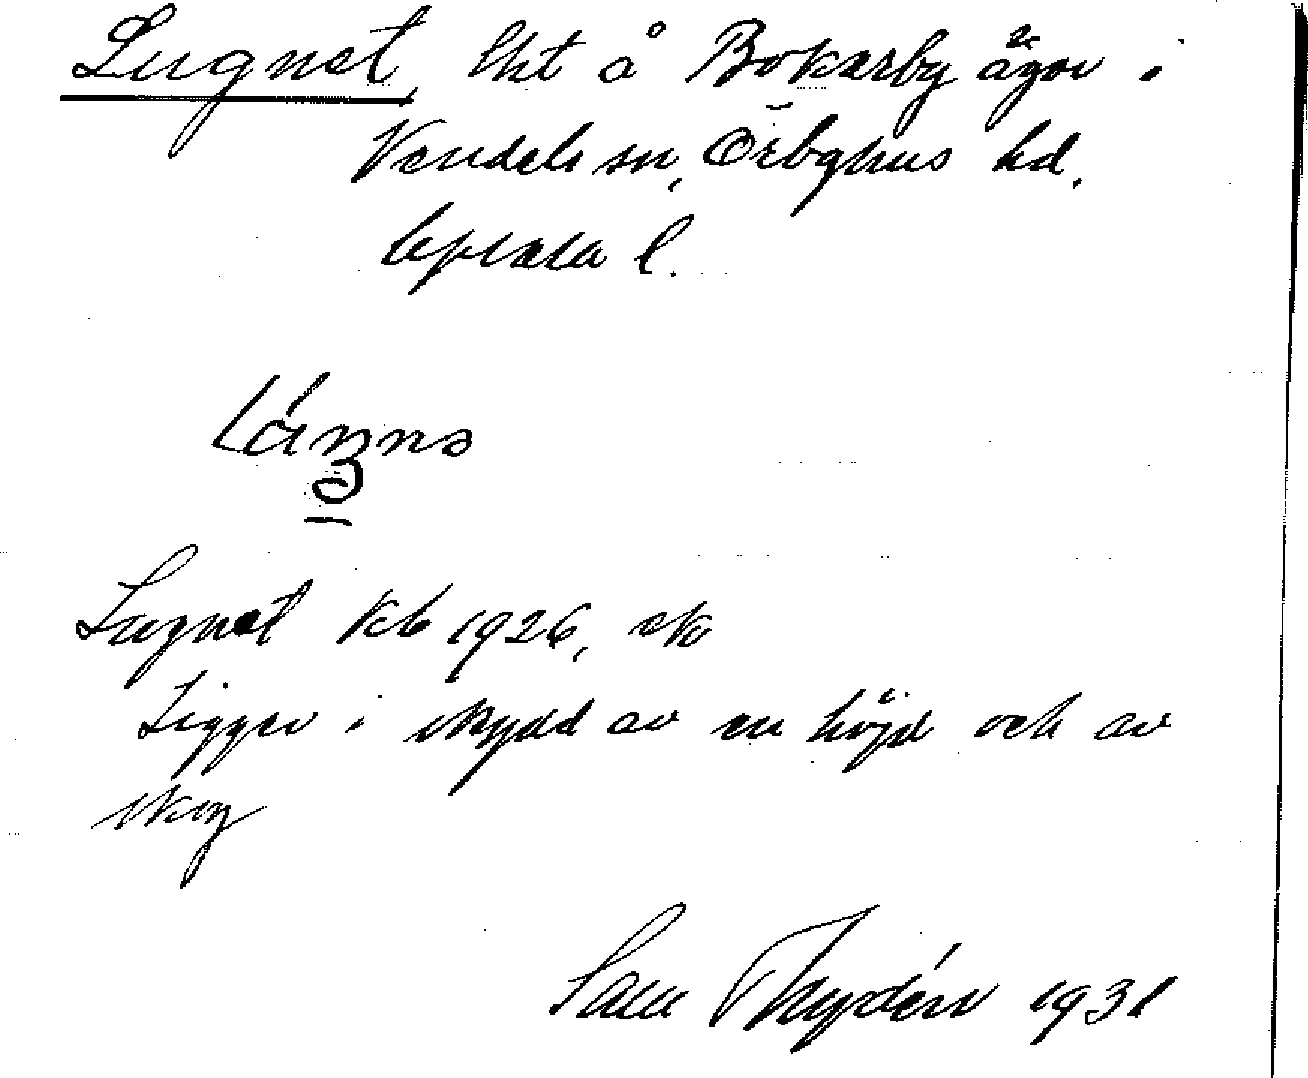 Lugnet lht å Bokarby ägor i
Vendels sn, Örbyhus hd.
Upsala l.
Lugnet kb 1926, ek
Ligger i skydd av en höjd och av
skog
Sam Thydén 1931